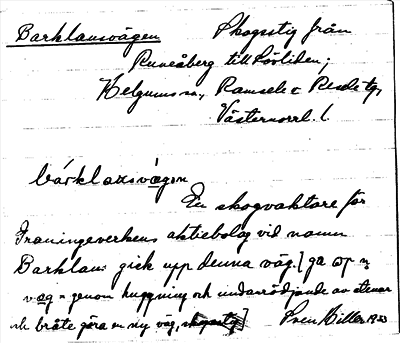 Barklausvägen Skogsstig från
Runeåberg till Sörliden;
Helgums sn, Ramsele o. Resele tg,
Västernorrl. l.
bárklaxsvægen
En skogvaktare för
Graningeverkens aktiebolag vid namn
Barklaus gick upp denna väg. [ga op
væg = genom huggning och undanrödjande av stenar
och bråte göra en ny väg,]
Sven Hiller 1923